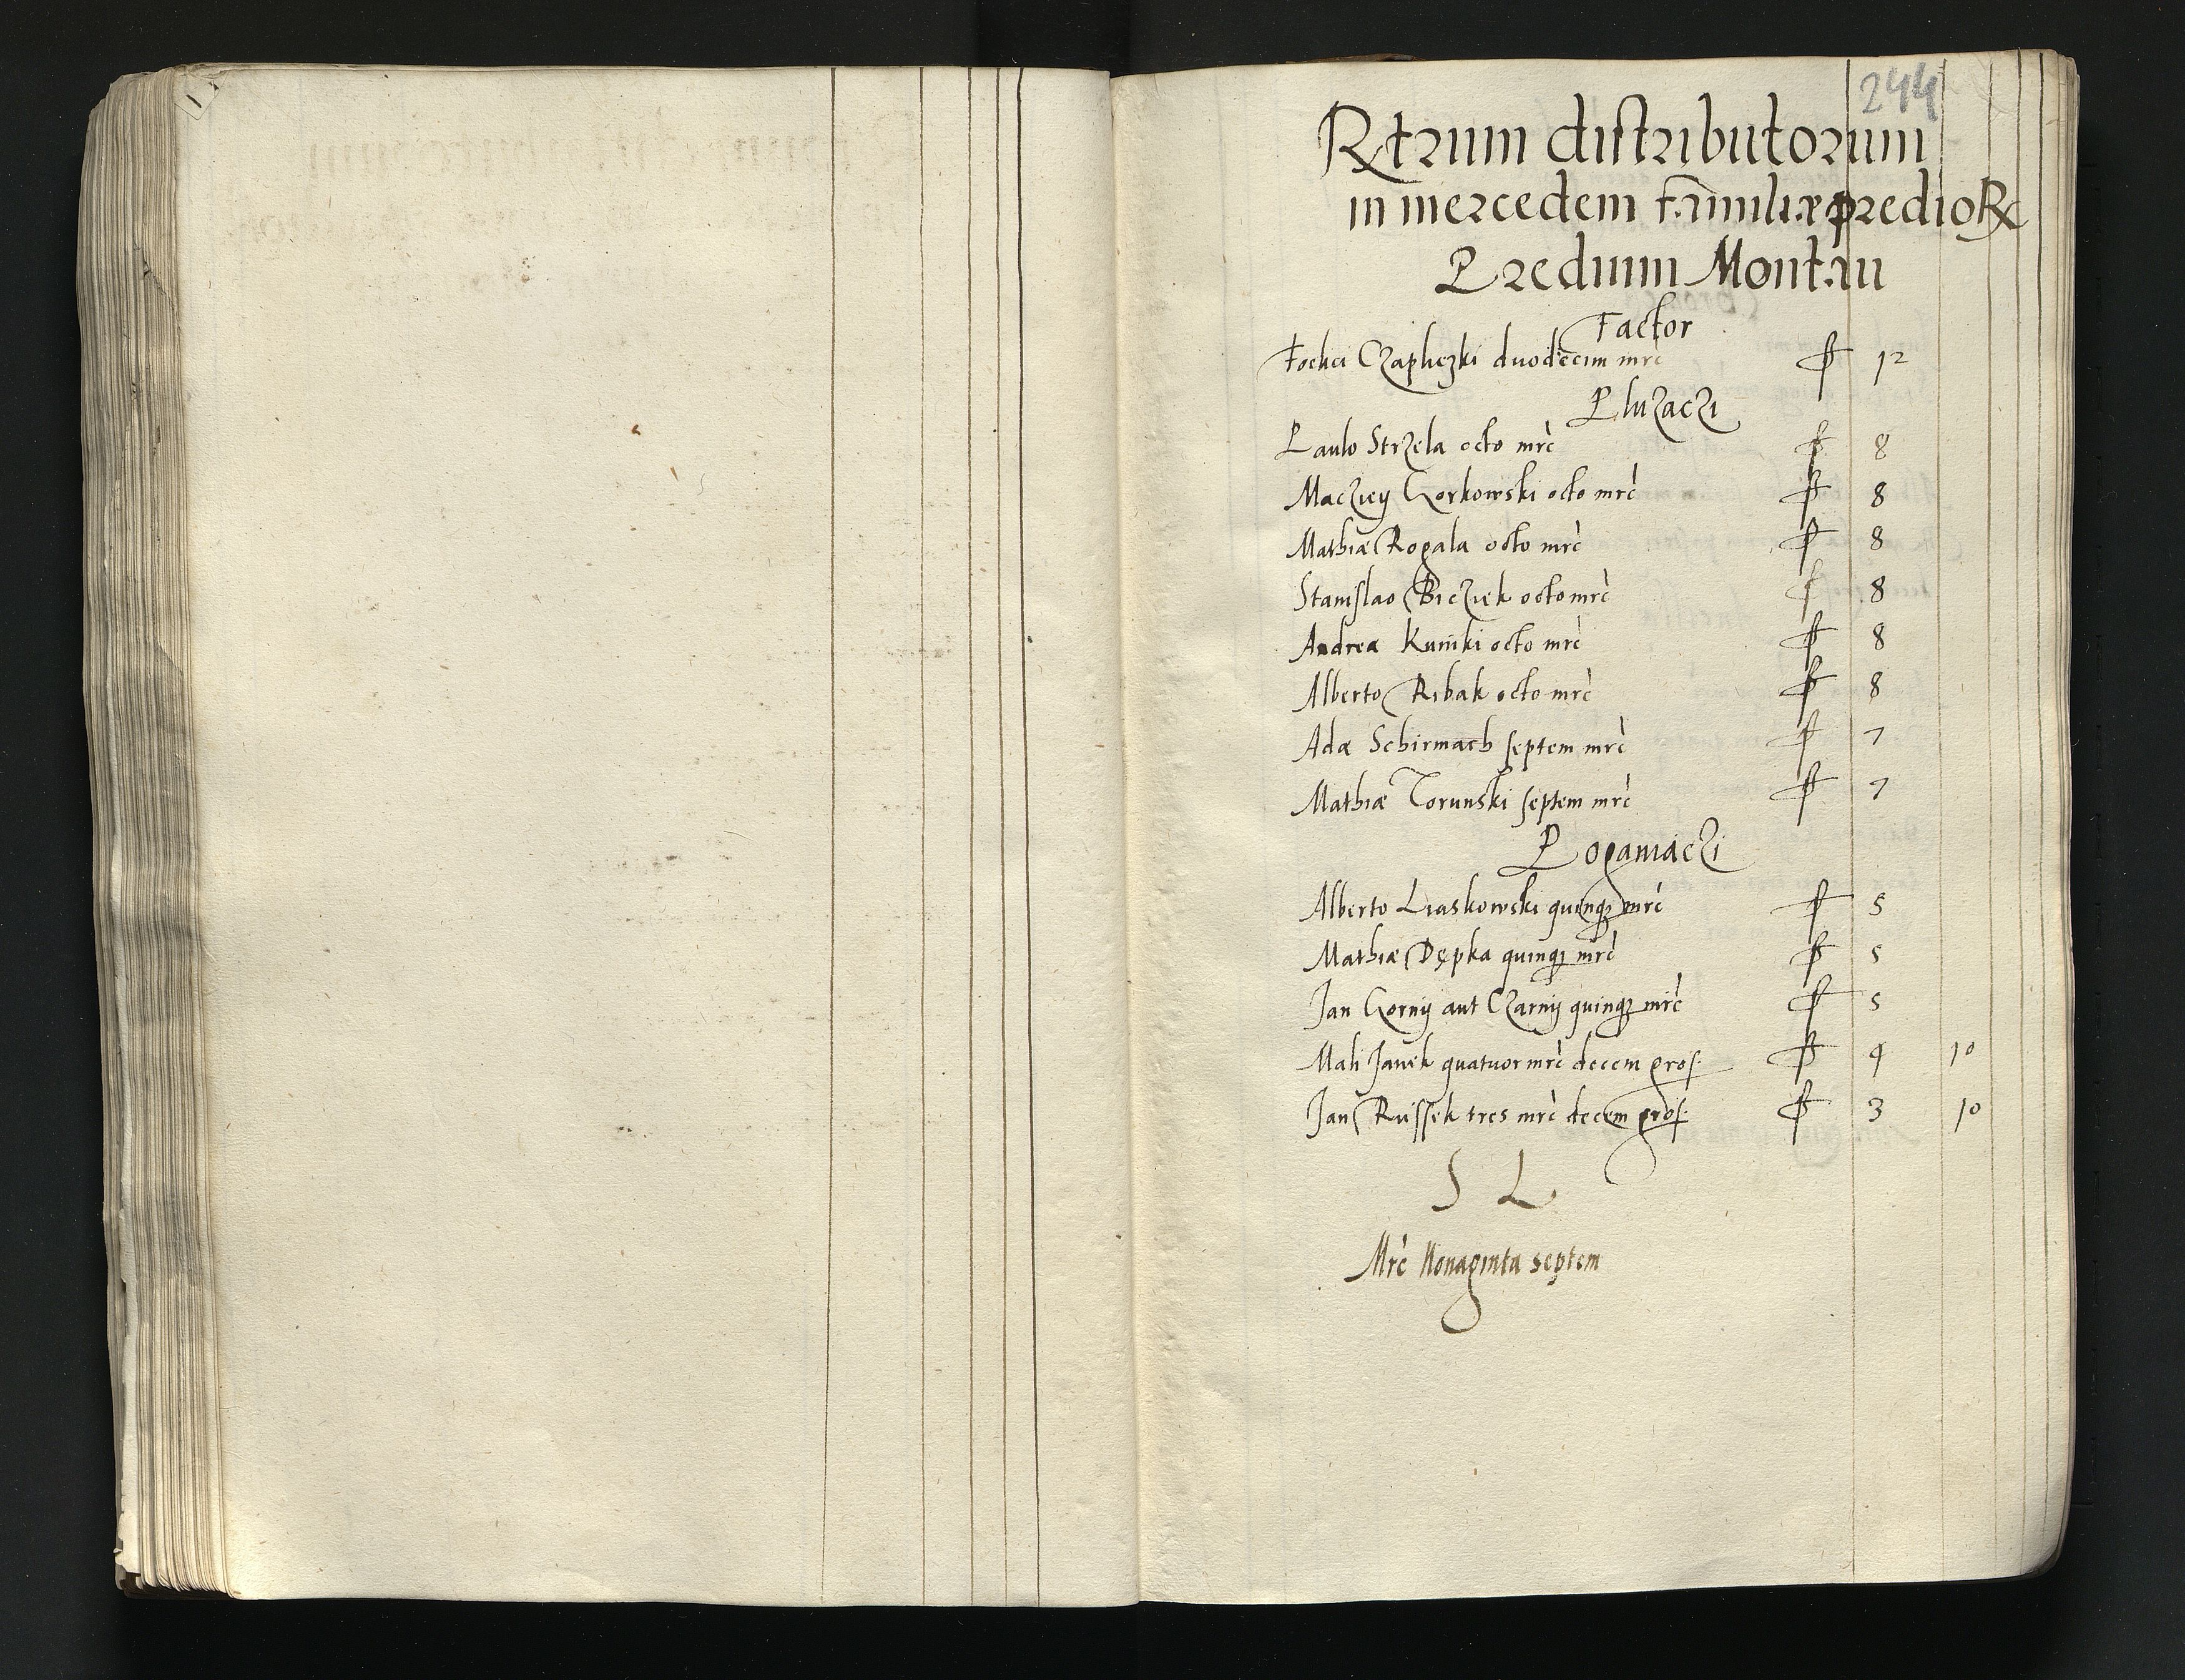 244
Rtrum distributorum
in mercedem familiæ prediorꝝ
Predium Montau
Factor
Czaplyczki duodecim mrč ꝑ 12
Pluzaczi
Paulo Strzela octo mrč 8
Macziey Gorkowski octo mrč 8
Mathiæ Rogala octo mrč 8
Stanislao Bicziek octo mrč 8
Andreæ Kuniki octo mrč 8
Alberto Ribak octo mrč 8
Adæ Schirmach septem mrč 7
Mathiæ Torunski septem mrč 7
Poganiaczi
Alberto Liaskowski quinqꝫ mrč 5
Mathiæ Dępka quinqꝫ mrč 5
Jan Gorny aut Czarny quinqꝫ mrč 5
Mali Janek quatuor mrč decem gros. 4 10
Jan Russek tres mrč decem gros. 3 10
S L
Mrč Nonaginta septem